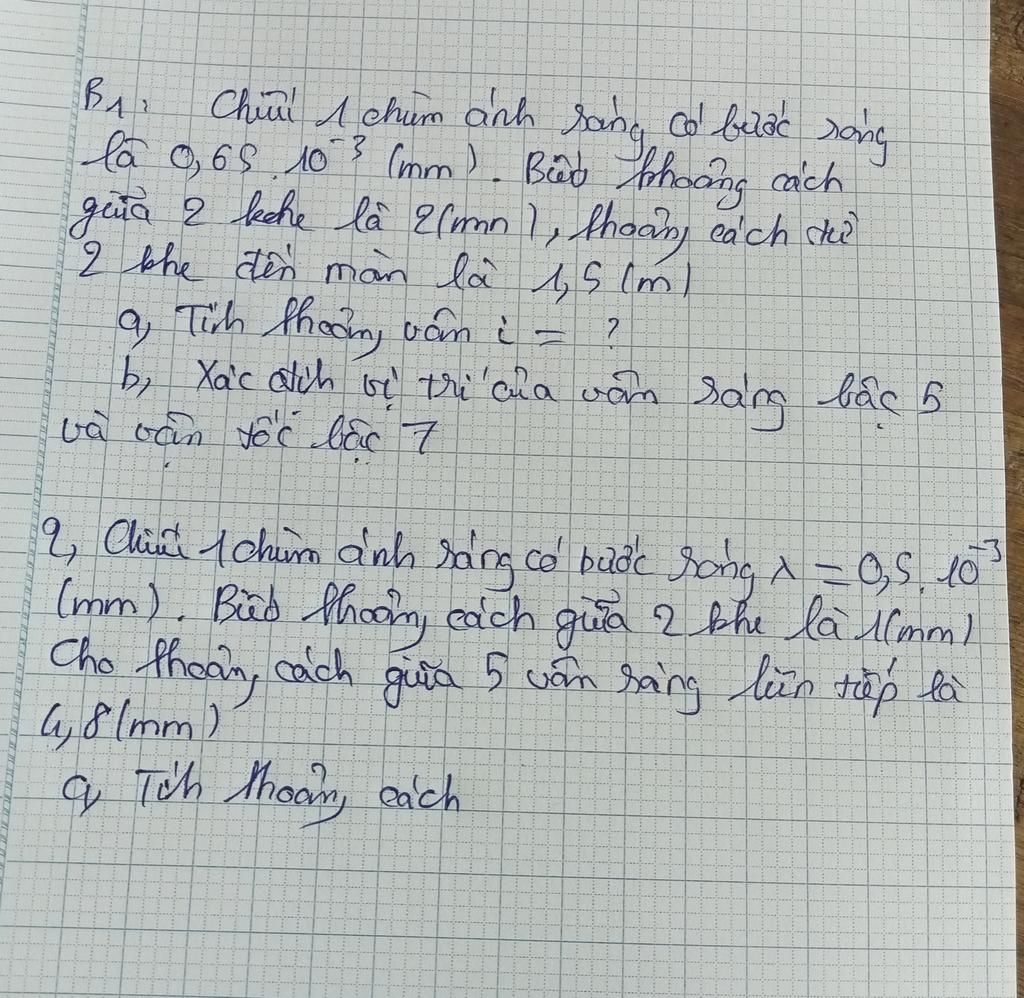 B1: Chiếu 1 chùm ánh sáng có bước sóng
là 0,65.10⁻³ (mm). Biết khoảng cách
giữa 2 kche là 2(mm), khoảng cách từ
2 khe đến màn là 1,5 (m)
a, Tính khoảng vân i = ?
b, Xác định vị trí của vân sáng bậc 5
và vận tốc bậc 7
2, Chiếu 1 chùm ánh sáng có bước sóng λ = 0,5.10⁻³
(mm). Biết khoảng cách giữa 2 khe là 1(mm)
Cho khoảng cách giữa 5 vân sáng liên tiếp là
4,8(mm)
a, Tính khoảng cách